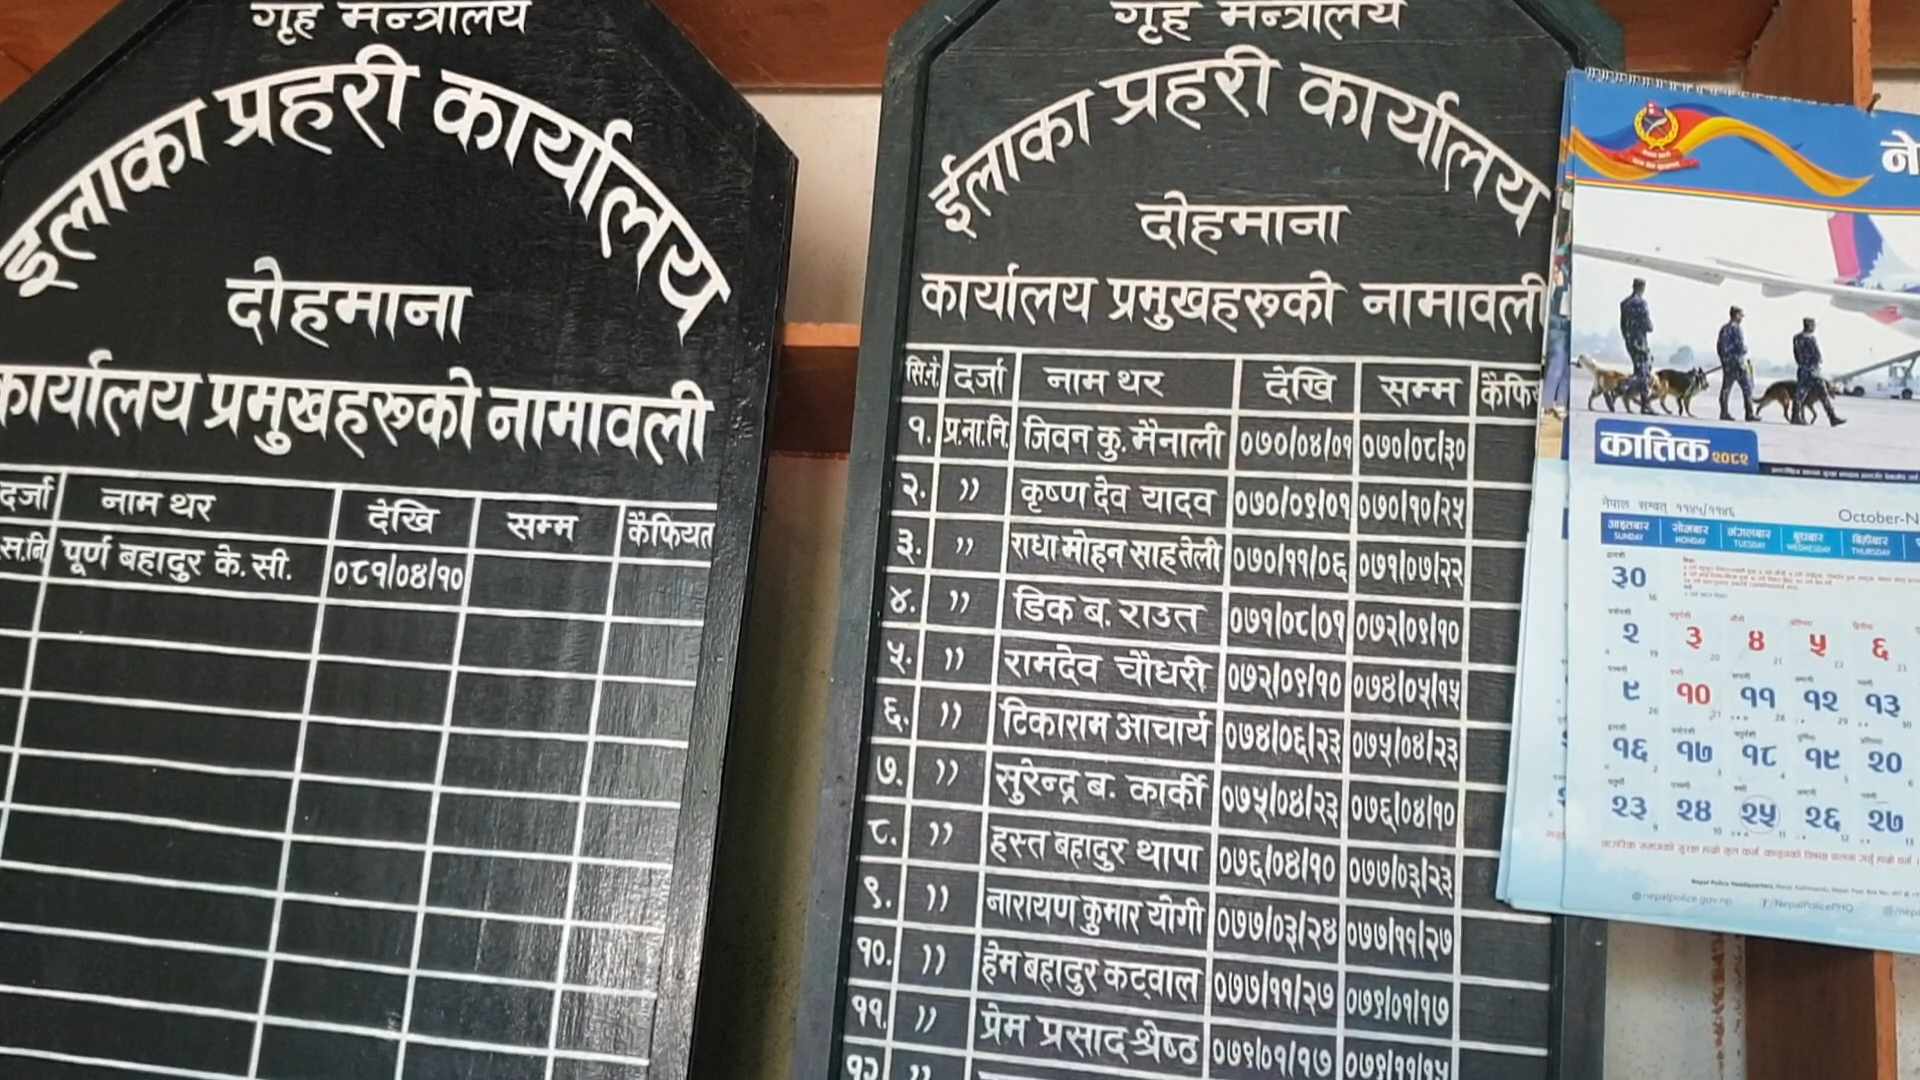 गृह मन्त्रालय
इलाका प्रहरी कार्यालय
दोहमाना
कार्यालय प्रमुखहरूको नामावली
दर्जा नाम थर देखि सम्म कैफियत
स.नि. पूर्ण बहादुर के.सी. ०८१/०४/१०
गृह मन्त्रालय
ईलाका प्रहरी कार्यालय
दोहमाना
कार्यालय प्रमुखहरूको नामावली
सि.नं. दर्जा नाम थर देखि सम्म
१. प्र.ना.नि. जिवन कु. मैनाली ०७०/०४/०१ ०७०/०८/३०
२. ,, कृष्ण देव यादव ०७०/०९/०१ ०७०/१०/२५
३. ,, राधा मोहन साह तेली ०७०/११/०६ ०७१/०७/२२
४. ,, डिक ब. राउत ०७१/०८/०१ ०७२/०९/१०
५. ,, रामदेव चौधरी ०७२/०९/१० ०७४/०५/१५
६. ,, टिकाराम आचार्य ०७४/०६/२३ ०७५/०४/२३
७. ,, सुरेन्द्र ब. कार्की ०७५/०४/२३ ०७६/०४/१०
८. ,, हस्त बहादुर थापा ०७६/०४/१० ०७७/०३/२३
९. ,, नारायण कुमार योगी ०७७/०३/२४ ०७७/११/२७
१०. ,, हेम बहादुर कट्वाल ०७७/११/२७ ०७९/०१/१७
११. ,, प्रेम प्रसाद श्रेष्ठ ०७९/०१/१७ ०७९/११/१५
१२ ,,
कात्तिक २०८२
नेपाल सम्वत् ११४५/११४६
October-N
आइतबार सोमबार मंगलबार बुधबार बिहीबार
SUNDAY MONDAY TUESDAY WEDNESDAY THURSDAY
३० 16
२ 19 ३ 20 ४ 21 ५ 22 ६ 23
९ 26 १० 27 ११ 28 १२ 29 १३ 30
१६ 2 १७ 3 १८ 4 १९ 5 २० 6
२३ 9 २४ 10 २५ 11 २६ 12 २७ 13
@nepalpolice.gov.np /NepalPolicePHQ